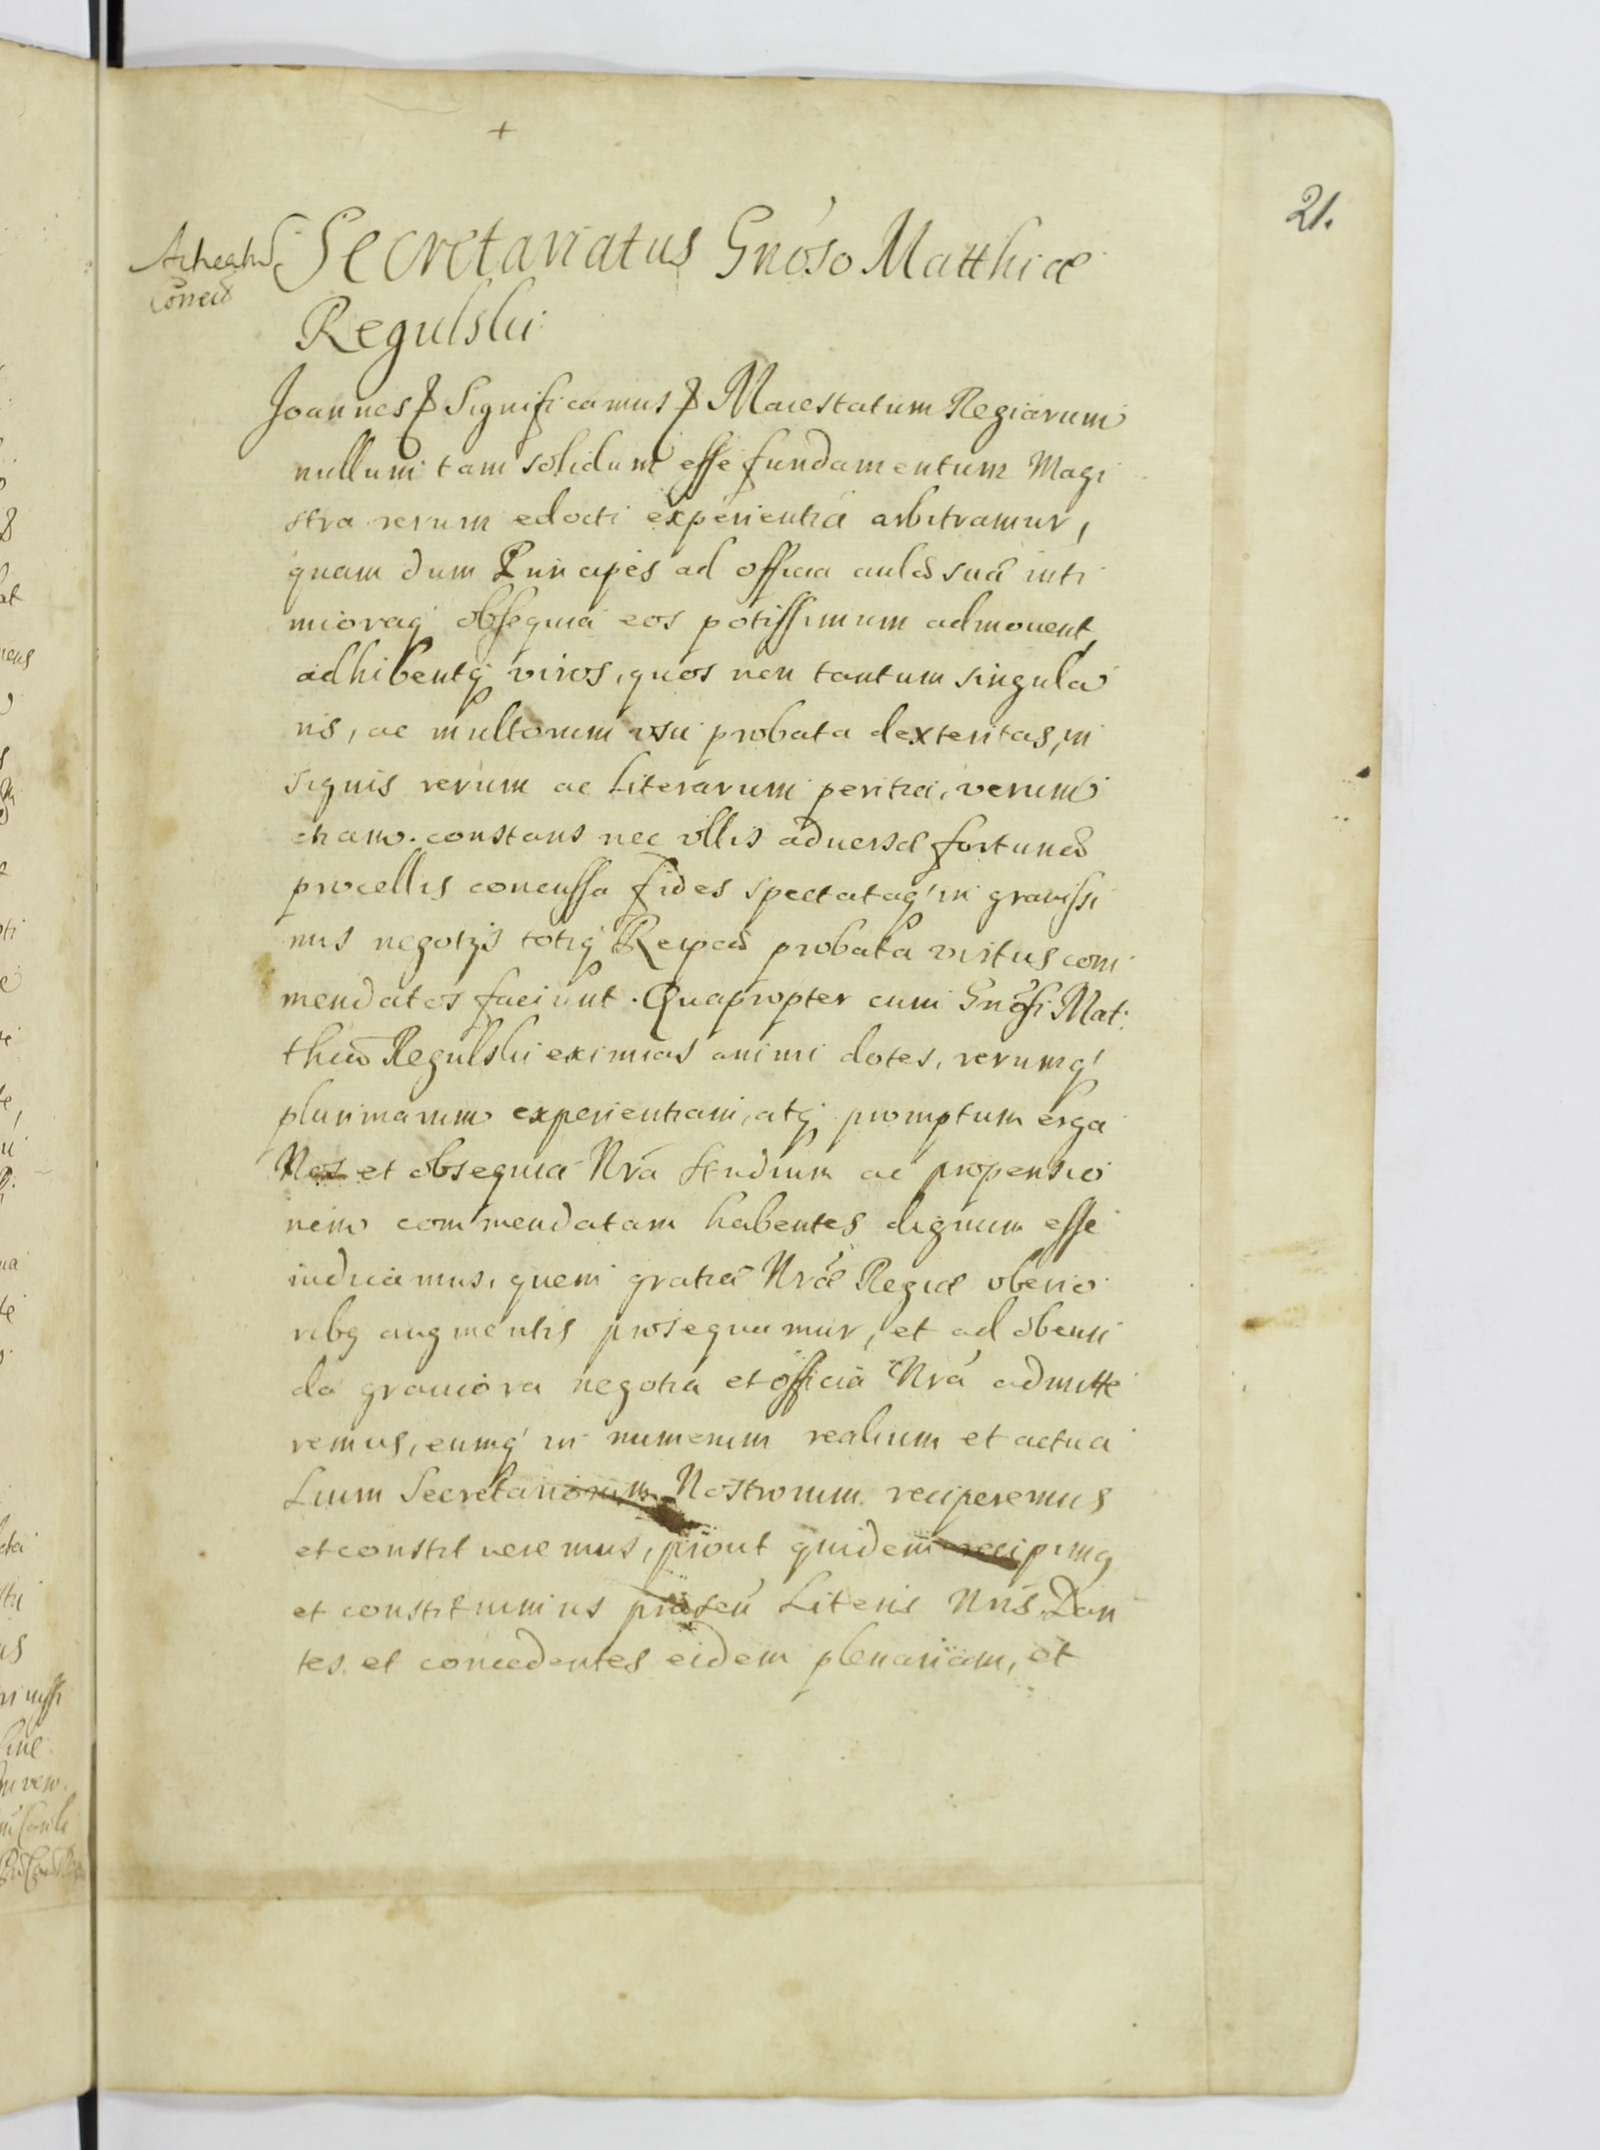 21.
Secretariatus Gnoso Matthiæ
Regulski
Joannes & Significamus & Maiestatum Regiarum
nullum tam solidum esse fundamentum Magi
stra rerum edocti experientia arbitramur,
quam dum Principes ad officia aulæ suæ inti
mioraq obsequia eos potissimum admouent,
adhibentq viros, quos non tantum singula
ris, ac multorum vsu probata dexteritas, in
signis rerum ac literarum peritia, verum
etiam constans nec vllis aduersæ fortunæ
procellis concussa fides spectataq in grauissi
mis negotijs totiq Reipcæ probata virtus com
mendatos faciunt. Quapropter cum Gnosi Mat
thiæ Regulski eximias animi dotes, rerumq
plurimarum experientiam, atq promptum erga
Nos et obsequia Nra studium ac propensio
nem commendatam habentes dignum esse
iudicamus, quem gratiæ Nræ Regiæ vberio
ribq augmentis prosequamur, et ad obeun
da grauiora negotia et officia Nra admitte
remus, eumq in numerum realium et actua
lium Secretariorum Nostrorum reciperemus
et constitueremus, prout quidem recipimq
et constituimus præsen Literis Nris. Dan
tes et concedentes eidem plenariam, et